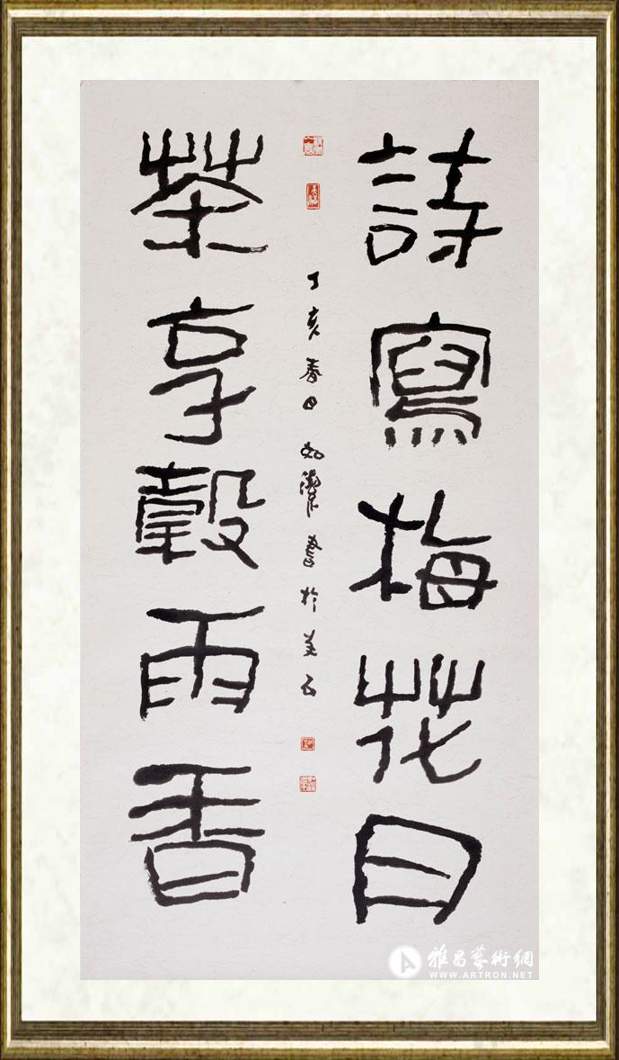 詩寫梅花月
丁亥春日如書於石
茶享穀雨香
雅昌藝術網
WWW.ARTRON.NET